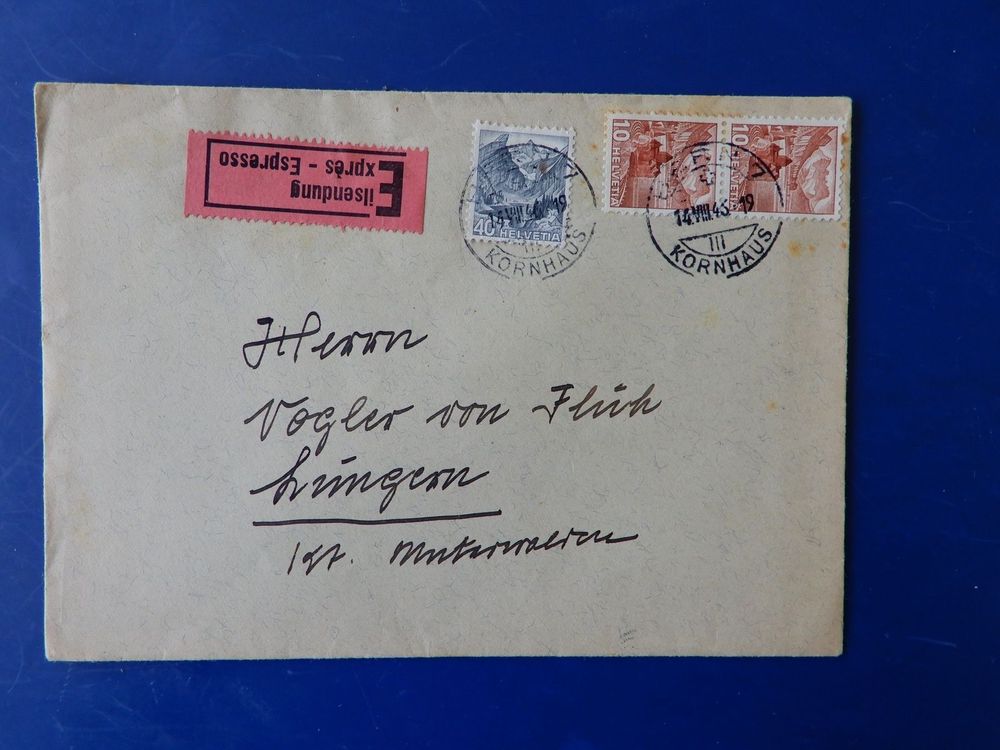 Eilsendung
Exprès - Espresso
40 HELVETIA
10 HELVETIA
10 HELVETIA
14.VIII.43. 19
III
KORNHAUS
14.VIII.43. 19
III
KORNHAUS
Herrn
Vogler von Flüh
Lungern
Kt. Unterwalden